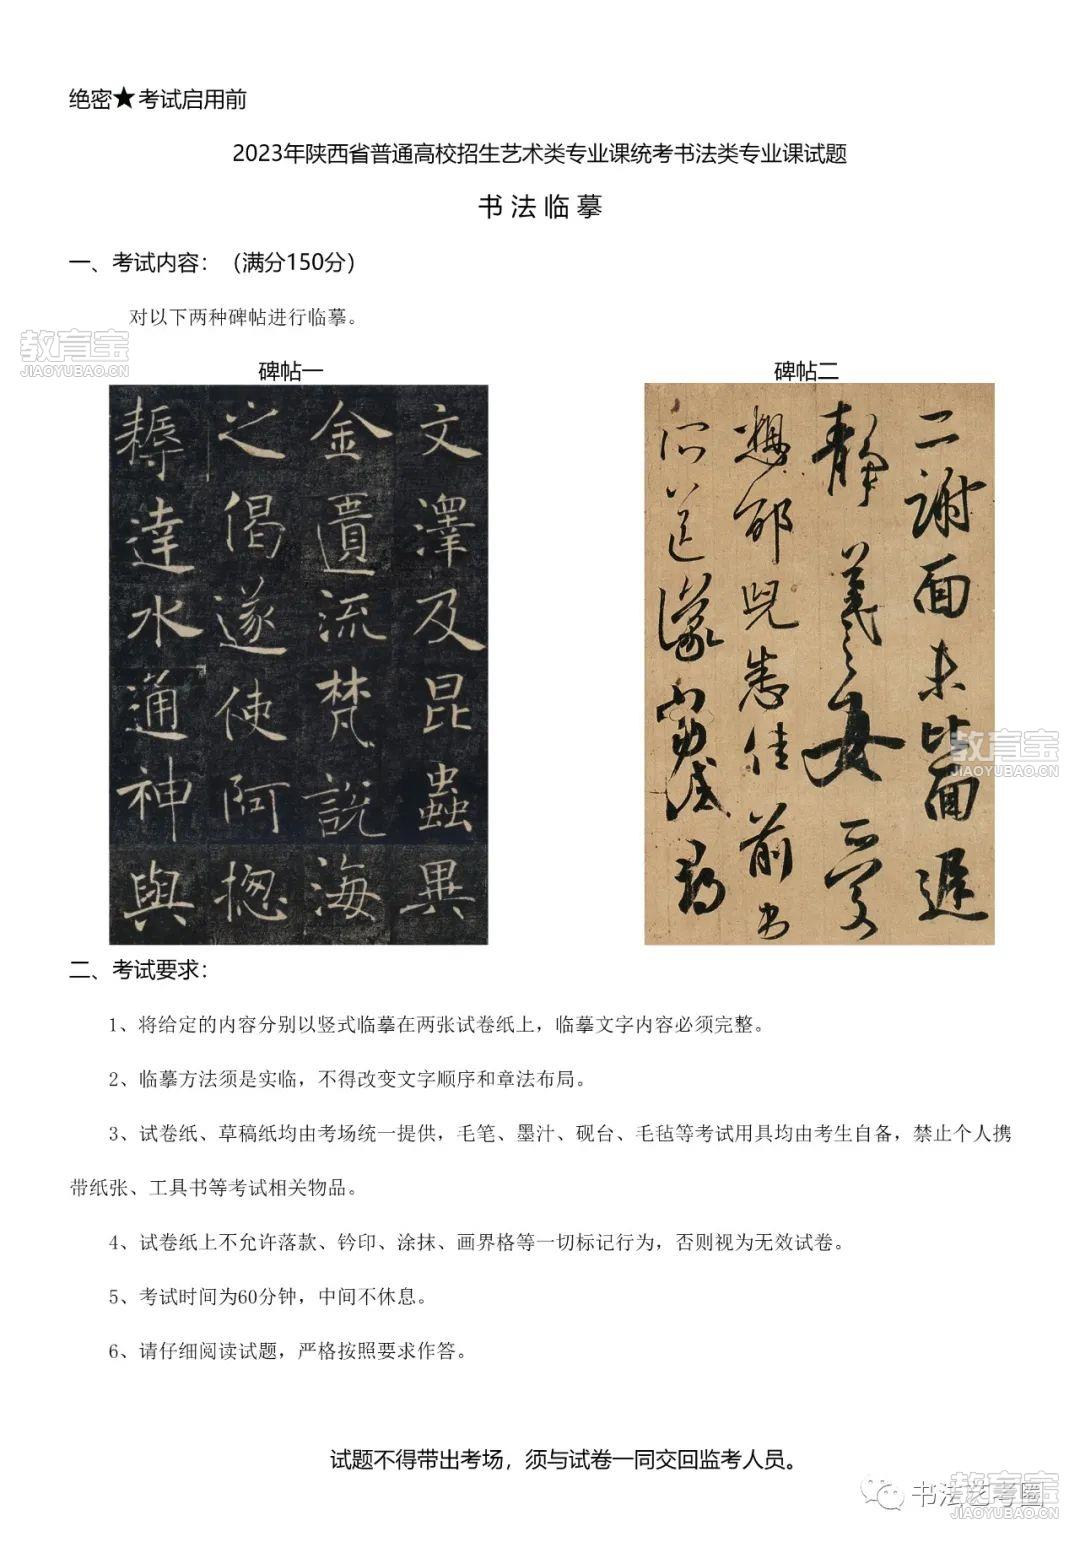 绝密★考试启用前
2023年陕西省普通高校招生艺术类专业课统考书法类专业课试题
书法临摹
一、考试内容：（满分150分）
对以下两种碑帖进行临摹。
教育宝
JIAOYUBAO.CN
碑帖一
文澤及昆蟲異
金遺流梵說海
之偈遂使阿
耨達水通神與
碑帖二
二謝面未比面遲
靜羲之女愛
想邵兒悉佳前
教育宝
JIAOYUBAO.CN
二、考试要求：
1、将给定的内容分别以竖式临摹在两张试卷纸上，临摹文字内容必须完整。
2、临摹方法须是实临，不得改变文字顺序和章法布局。
3、试卷纸、草稿纸均由考场统一提供，毛笔、墨汁、砚台、毛毡等考试用具均由考生自备，禁止个人携
带纸张、工具书等考试相关物品。
4、试卷纸上不允许落款、钤印、涂抹、画界格等一切标记行为，否则视为无效试卷。
5、考试时间为60分钟，中间不休息。
6、请仔细阅读试题，严格按照要求作答。
试题不得带出考场，须与试卷一同交回监考人员。
书法艺考圈
教育宝
JIAOYUBAO.CN